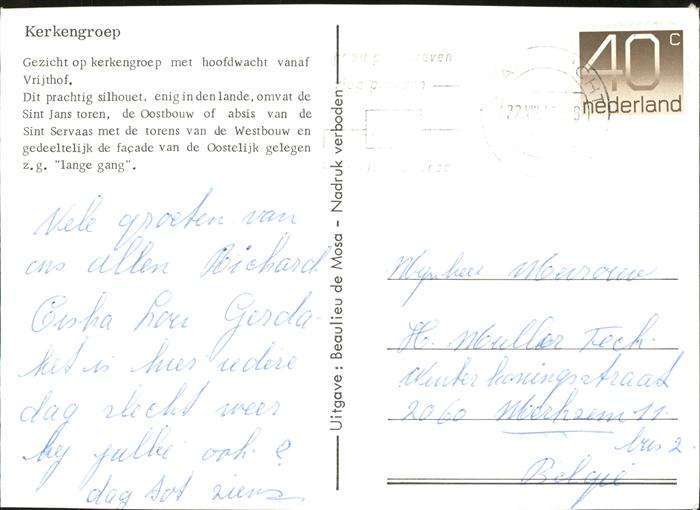 Kerkengroep
Gezicht op kerkengroep met hoofdwacht vanaf
Vrijthof.
Dit prachtig silhouet, enig in den lande, omvat de
Sint Jans toren, de Oostbouw of absis van de
Sint Servaas met de torens van de Westbouw en
gedeeltelijk de façade van de Oostelijk gelegen
z.g. "lange gang".
Vele groeten van
ons allen Richard
Ciska Lou Gerda
het is hier iedere
dag slecht weer
by jullie ook ?
dag tot ziens
Uitgave : Beaulieu de Mosa - Nadruk verboden
40 c
nederland
Mynheer Mevrouw
H. Muller Tech.
Winterkoningstraat
2060 Merksem 11
bus 2
België